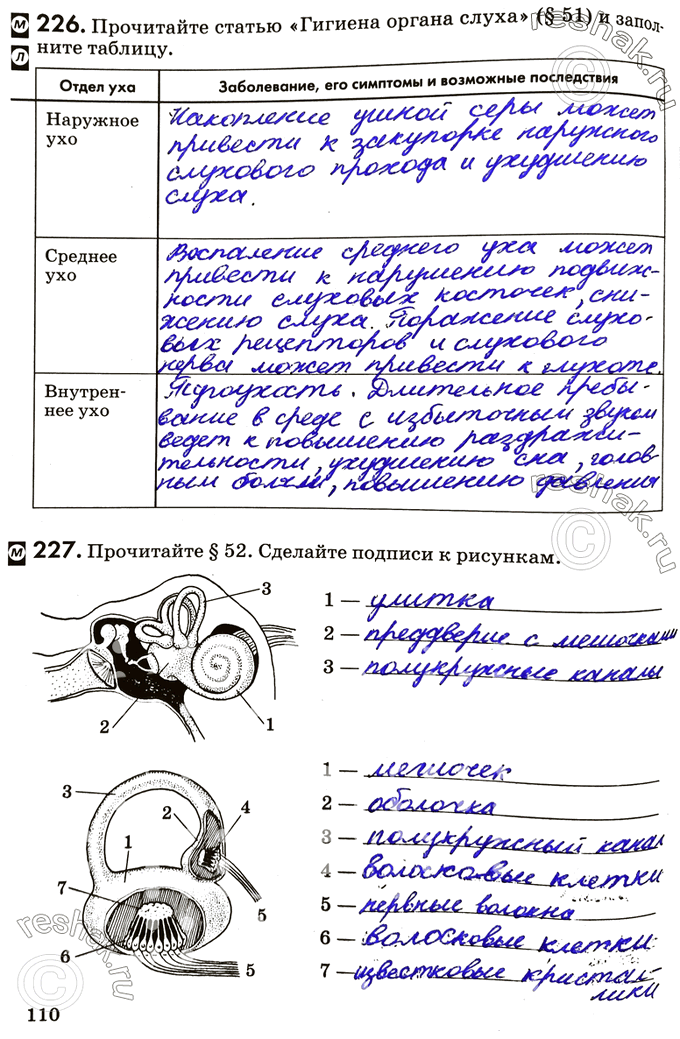 М 226. Прочитайте статью «Гигиена органа слуха» (§ 51) и запол-
Л ните таблицу.
Отдел уха Заболевание, его симптомы и возможные последствия
Наружное ухо
Накопление ушной серы может
привести к закупорке наружного
слухового прохода и ухудшению
слуха.
Среднее ухо
Воспаление среднего уха может
привести к нарушению подвиж-
ности слуховых косточек, сни-
жению слуха. Поражение слухо-
вых рецепторов и слухового
нерва может привести к глухоте.
Внутрен-
нее ухо
Тугоухость. Длительное пребы-
вание в среде с избыточным звуком
ведет к повышению раздражи-
тельности, ухудшению сна, голов-
ным болям, повышению давления
М 227. Прочитайте § 52. Сделайте подписи к рисункам.
3
2
1
1 — улитка
2 — преддверие с мешочками
3 — полукружные каналы
3
2
4
1
7
5
6
5
1 — мешочек
2 — оболочка
3 — полукружный канал
4 — волосковые клетки
5 — нервные волокна
6 — волосковые клетки
7 — известковые кристал-
лики
110
reshak.ru
reshak.ru
reshak.ru